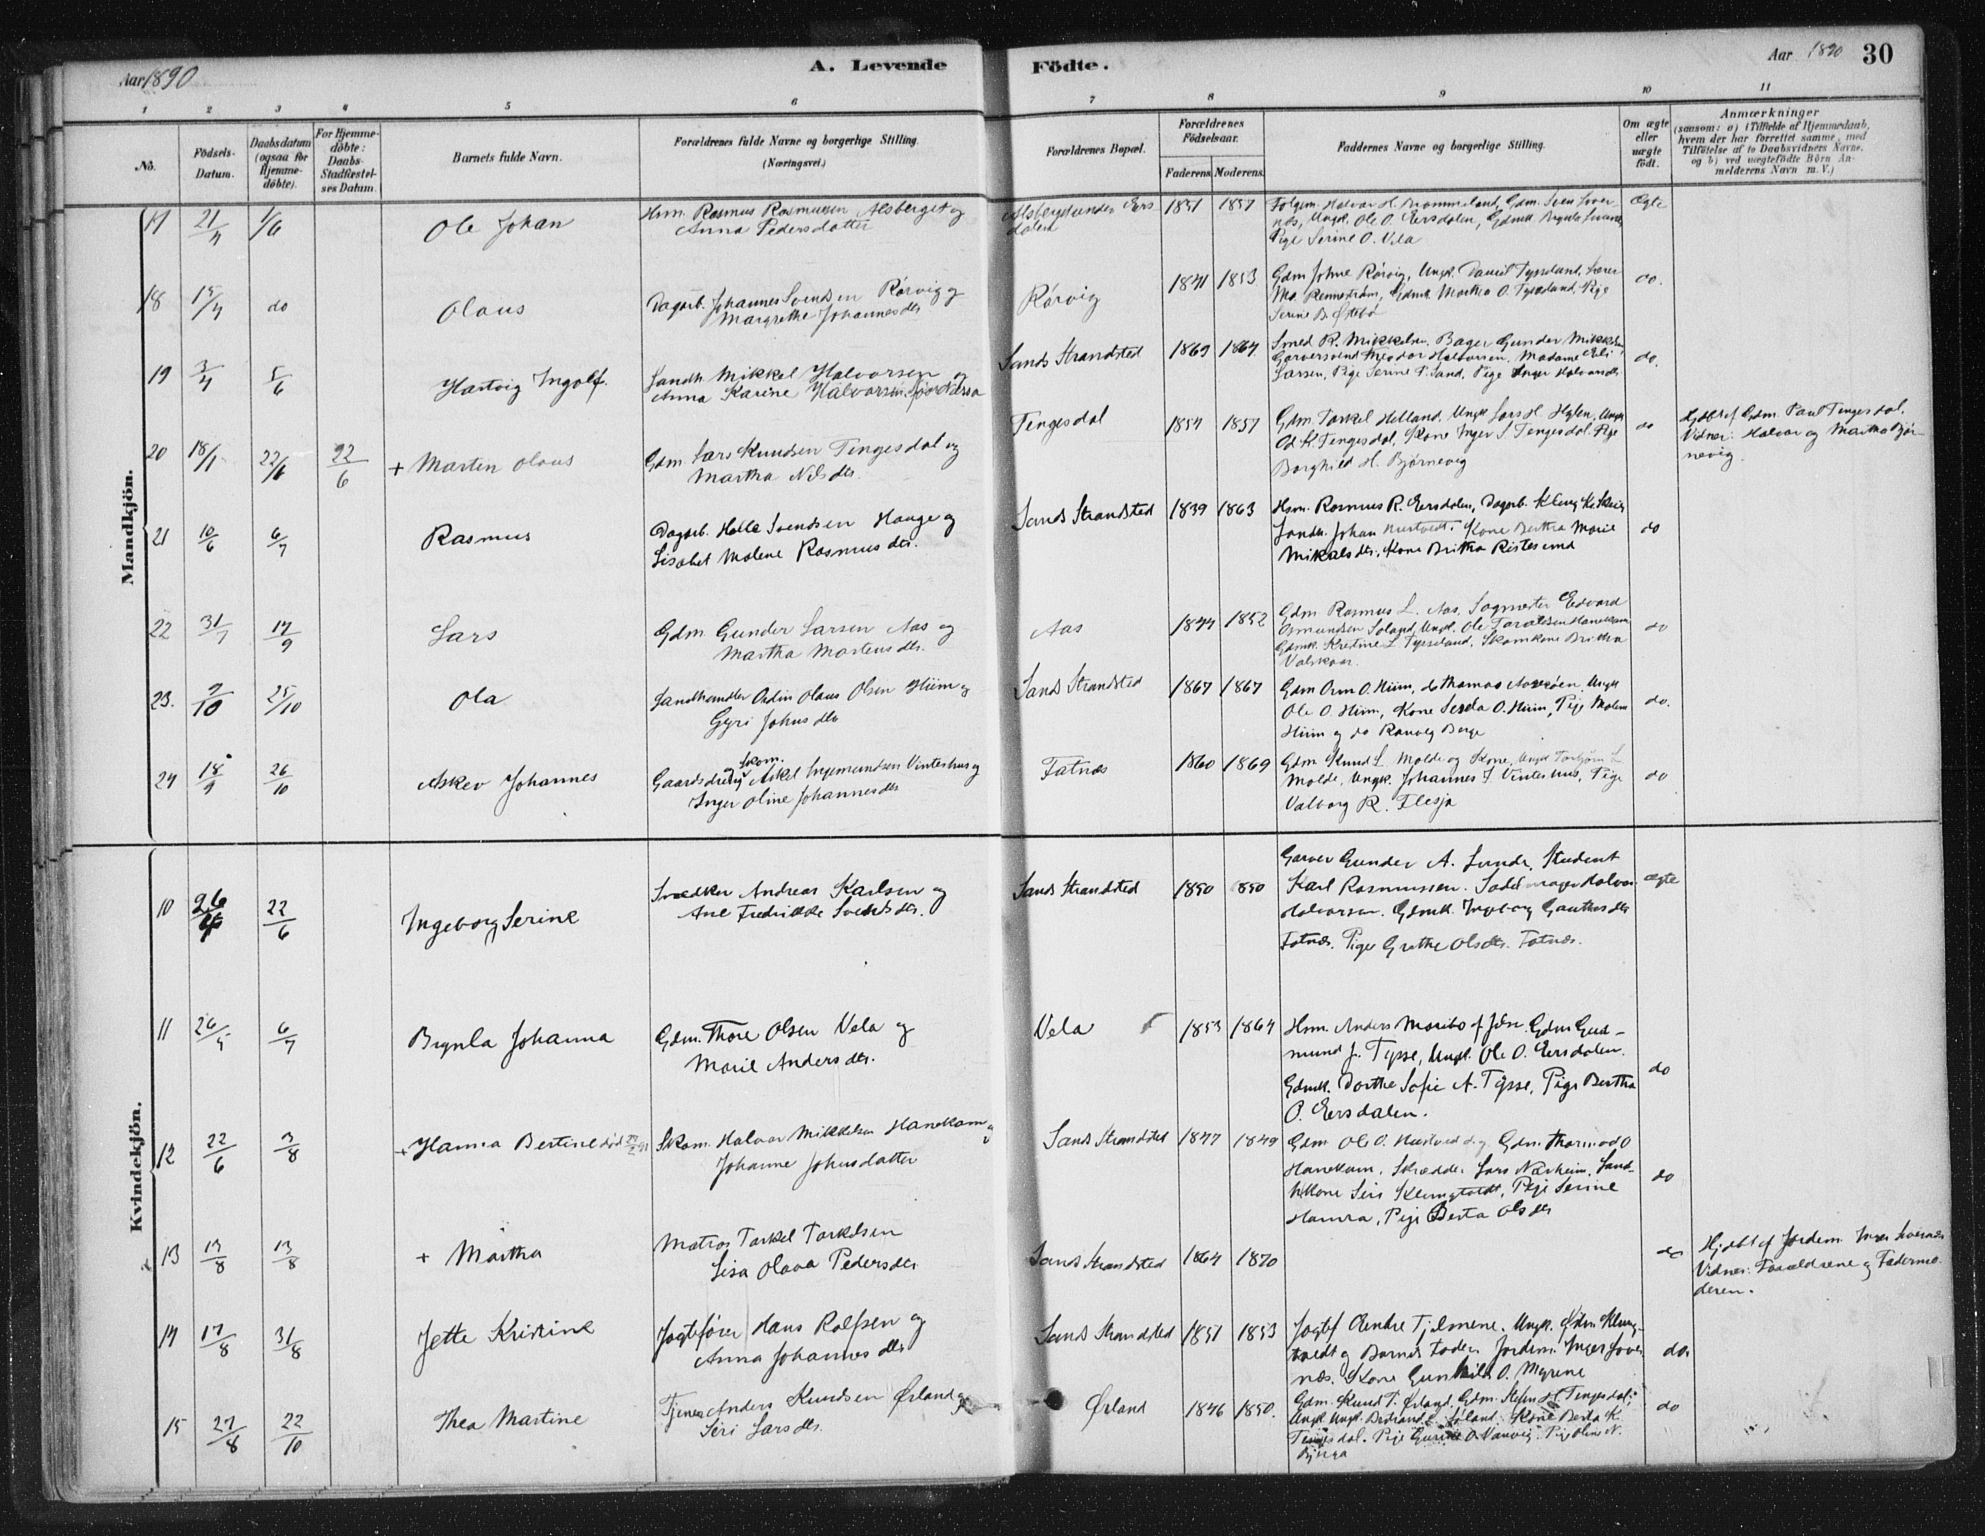 Aar 1890
A. Levende
Födte.
Aar 1890
30
1 2 3 4 5 6 7 8 9 10 11
No.
Födsels-Datum.
Daabsdatum (ogsaa for Hjemme-döbte).
For Hjemme-döbte: Daabs-Stadfæstel-ses Datum.
Barnets fulde Navn.
Forældrenes fulde Navne og borgerlige Stilling. (Næringsvei.)
Forældrenes Bopæl.
Forældrenes Födselsaar.
Faderens. Moderens.
Faddernes Navne og borgerlige Stilling.
Om ægte eller uægte födt.
Anmærkninger
(saasom: a) i Tilfælde af Hjemmedaab, hvem der har forrettet samme, med Tilföielse af to Daabsvidners Navne, og b) ved uægtefödte Börn An-melderens Navn m. V.)
Mandkjön.
17 21/4 1/6 Ole Johan
Hsm. Rasmus Rasmussen Alsberget og
Anna Pedersdatter
Alsberget under Eers
dalen
1851 1857
Pige Serine O. Vela
Ægte
18 15/4 do Olaus
Dagarb. Johannes Svendsen Rörvig og
Margrethe Johannesdtr
Rörvig
1841 1853
Gdm Johne Rörvig, Ungk. Daniel Tysseland, Lærer
Gdmk. Martha O. Tysseland, Pige
Serine B. Östebö
do.
19 3/4 5/6 Hartvig Ingolf.
Landh. Mikkel Halvorsen og
Anna Karine Halvorsen
Sands Strandsted
1869 1864
Smed R. Mikkelsen, Bager Gunder Mikkelsen,
Garversvend Theodor Halvorsen, Madame
Larsen, Pige Serine P. Sand, Pige Inger Halvorsdtr
do.
20 18/1 22/6 22/6 + Marten Olaus
Gdm. Lars Knudsen Tengesdal og
Martha Nilsdtr.
Tengesdal
1854 1857
Gdm. Torkel Helland, Ungk Lars H. Hylen, Ungk
Tengesdal, Kone Inger S Tengesdal, Pige
Borghild H. Bjørnevig
do
Hjdbt af Gdm. Paul Tengesdal.
Vidner: Halvor og Martha Bjør-
nevig
21 10/6 6/7 Rasmus
Dagarb. Helle Svendsen Hauge og
Lisabet Malene Rasmusdtr.
Sands Strandsted
1839 1863
Hsm. Rasmus R. Eersdalen, Dagarb.
Landh. Johan Kone Bertha Marie
Mikalsdtr, Kone Britha
do
22 31/7 14/9 Lars
Gdm. Gunder Larsen Aas og
Martha Martensdtr.
Aas
1844 1852
Gdm Rasmus L. Aas, Sogmester Edvard
Osmundsen Soland, Ungk. Ole
Gdmk. Kristine L. Tysseland, Skomkone Britha
do
23. 9/10 25/10 Ola
Landhandler Odin Olaus Olsen Hiim og
Gyri Johnsdtr
Sands Strandsted
1867 1867
Gdm Orm O. Hiim, do Thomas Ungk
Ole O. Hiim, Kone O. Hiim, Pige Malene
Hiim og do Ranveg Berge
do.
24 18/9 26/10 Askev Johannes
og Skom.
Gaardsdreng Askel Ingemundsen Vinterhus og
Inger Oline Johannesdtr
Fatnæs
1860 1869
Gdm Knud L. Molde og Kone, Ungk Torbjørn L
Molde, Ungk. Johannes J. Vinterhus, Pige
Valborg R. Flesja
do
Kvindekjön.
10 26/4 22/6 Ingeborg Serine
Snedker Andreas Karlsen og
Ane Fredrikke Svendsdtr.
Sands Strandsted
1850 1850
Garver Gunder A. Lunde, Student
Karl Rasmussen. Sadelmager Halvor
Halvorsen. Gdmk. Ingeborg Gauthesdtr
Fatnæs. Pige Grethe Olsdtr. Fatnæs.
ægte
11 26/5 6/7 Brynla Johanna
Gdm. Thore Olsen Vela og
Marie Andersdtr.
Vela
1853 1864
Hsm. Anders Moribo af Jelse. Gdm Gud-
mund J. Tysse, Ungk. Ole O. Eersdalen.
Gdmk. Dorthe Sofie A. Tysse, Pige Bertha
O. Eersdalen.
do
12 22/6 3/8 + Hanna Bertine död
Skom. Halvor Mikkelsen Hanekam og
Johanne Johnsdatter
Sands Strandsted
1847 1849
Gdm Ole O. og Gdm. Thormod O
Hanekam, Skrædder Lars Nærheim, Land-
hkone Siri Klungtvedt, Pige Serine
Hamra, Pige Berta Olsdtr
do
13 13/8 13/8 + Martha
Matros Torkel Torkelsen
Lisa Olava Pedersdtr
Sands Strandsted
1864 1870
do
Hjdbt af Jordem. Inger Lovenæs
Vidner: Forældrene og Fadermo-
deren.
14 17/8 31/8 Jette Kristine
Jagtefører Hans Rolfsen og
Anna Johannesdtr
Sands Strandsted
1851 1853
Jagtef Endre Tjelmene. Ungk. Klung-
tvedt og Barnets Fader. Jordem. Inger Love-
næs. Kone Gunhild O. Myrene
do.
15 27/8 22/10 Thea Martine
Tjener Anders Knudsen Ørland og
Siri Larsdtr.
Ørland
1846 1850.
Gdm. Knud T. Ørland, Gdm. Stefen H. Tengesdal,
Ungk. Søland. Kone Berta K.
Tengesdal. Pige O. Vanvig. Pige Oline N.
do